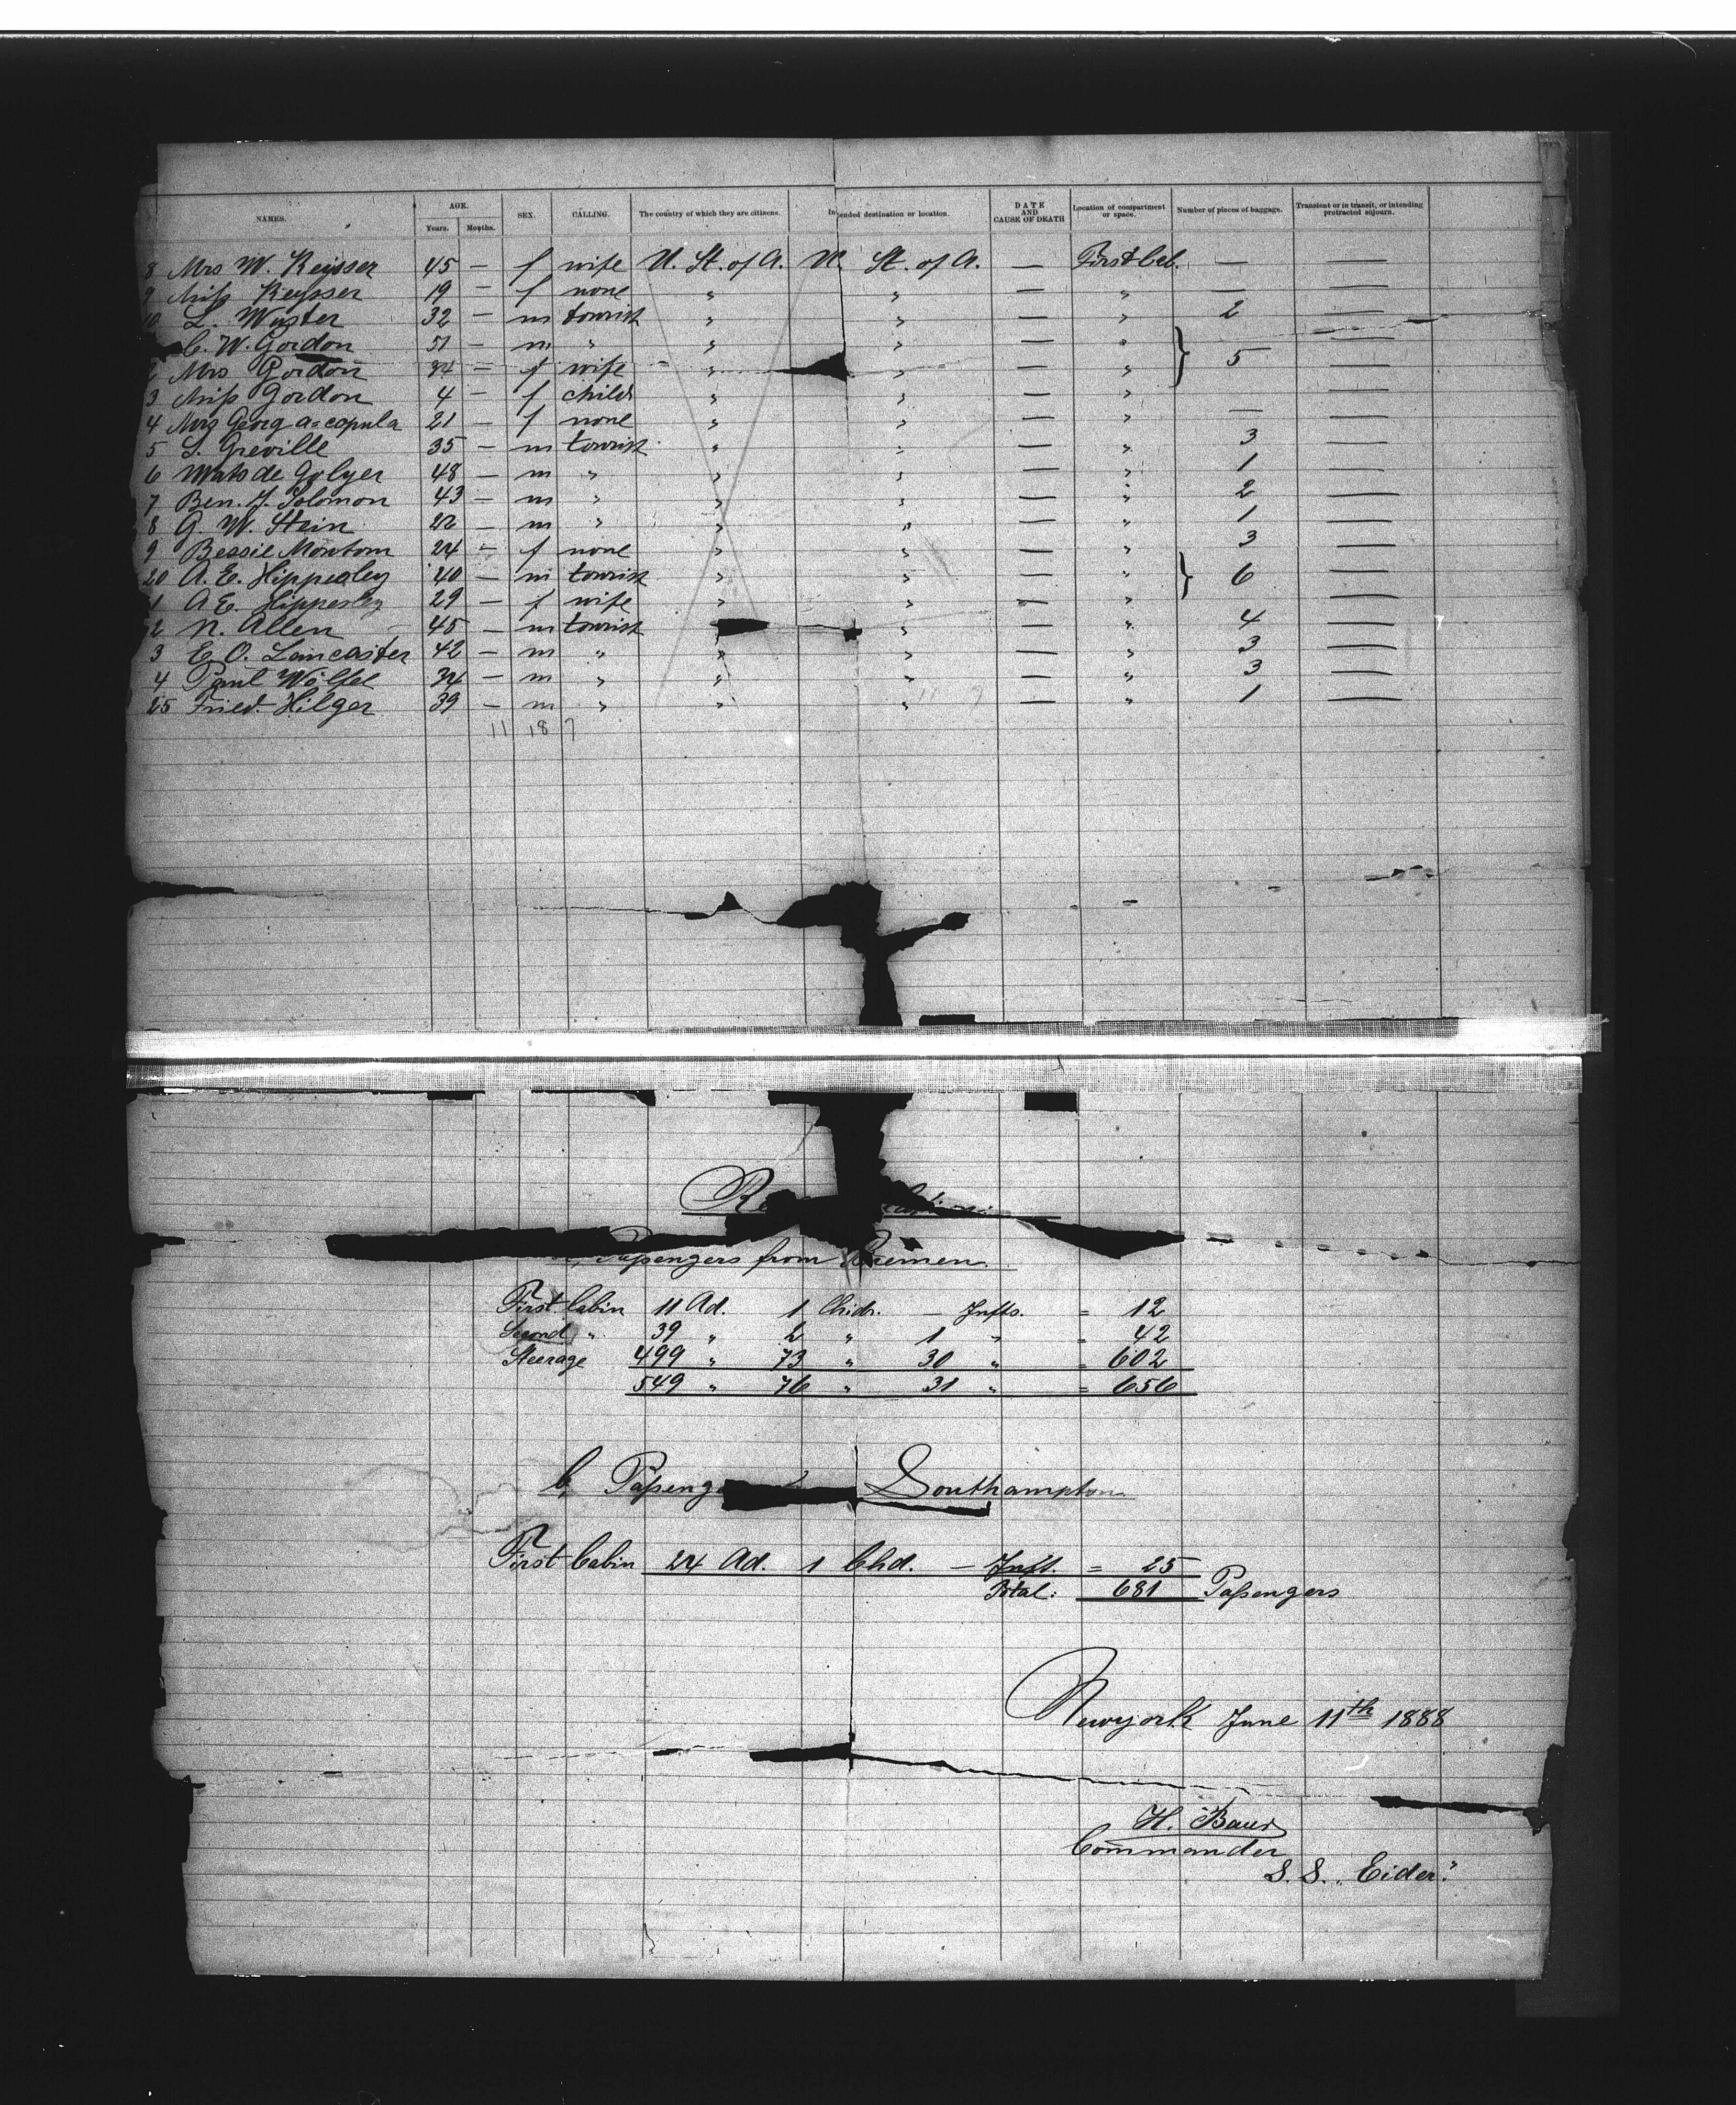 NAMES. AGE. Years. Months. SEX. CALLING. The country of which they are citizens. Intended destination or location. DATE AND CAUSE OF DEATH Location of compartment or space. Number of pieces of baggage. Transient or in transit, or intending protracted sojourn.
8 Mrs W. Keysser 45 — f wife U. St. of A. U. St. of A. — First Cab. — —
9 Miss Keysser 19 — f none " " — " — —
10 L. Wuster 32 — m tourist " " — " 2 —
C. W. Gordon 51 — m " " " — " } 5 —
2 Mrs Gordon 34 — f wife " " — " —
3 Miss Gordon 4 — f child " " — " —
4 Mrs Georg 21 — f none " " — " — —
5 S. Greville 35 — m tourist " " — " 3 —
6 Wats de Golyer 48 — m " " " — " 1 —
7 Ben. J. Solomon 43 — m " " " — " 2 —
8 G. W. Stein 22 — m " " " — " 1 —
9 Bessie 24 — f none " " — " 3 —
20 A. E. Hippesley 40 — m tourist " " — " } 6 —
1 A E. Hippesley 29 — f wife " " — " —
2 N. Allen 45 — m tourist " — " 4 —
3 E. O. Lancaster 42 — m " " " — " 3 —
4 Paul Wölfel 34 — m " " " — " 3 —
25 Fried. Hilger 39 — m " " " — " 1 —
11 18 7
Passengers from Bremen.
First Cabin 11 Ad. 1 Chidr. — Infts. = 12
Second " 39 " 2 " 1 " = 42
Steerage 499 " 73 " 30 " = 602
549 " 76 " 31 " = 656
b, Passeng Southampton
First Cabin 24 Ad. 1 Chd. — Inft. = 25
Total: 681 Passengers
Newyork June 11th 1888
H. Baur
Commander
S. S. „Eider."